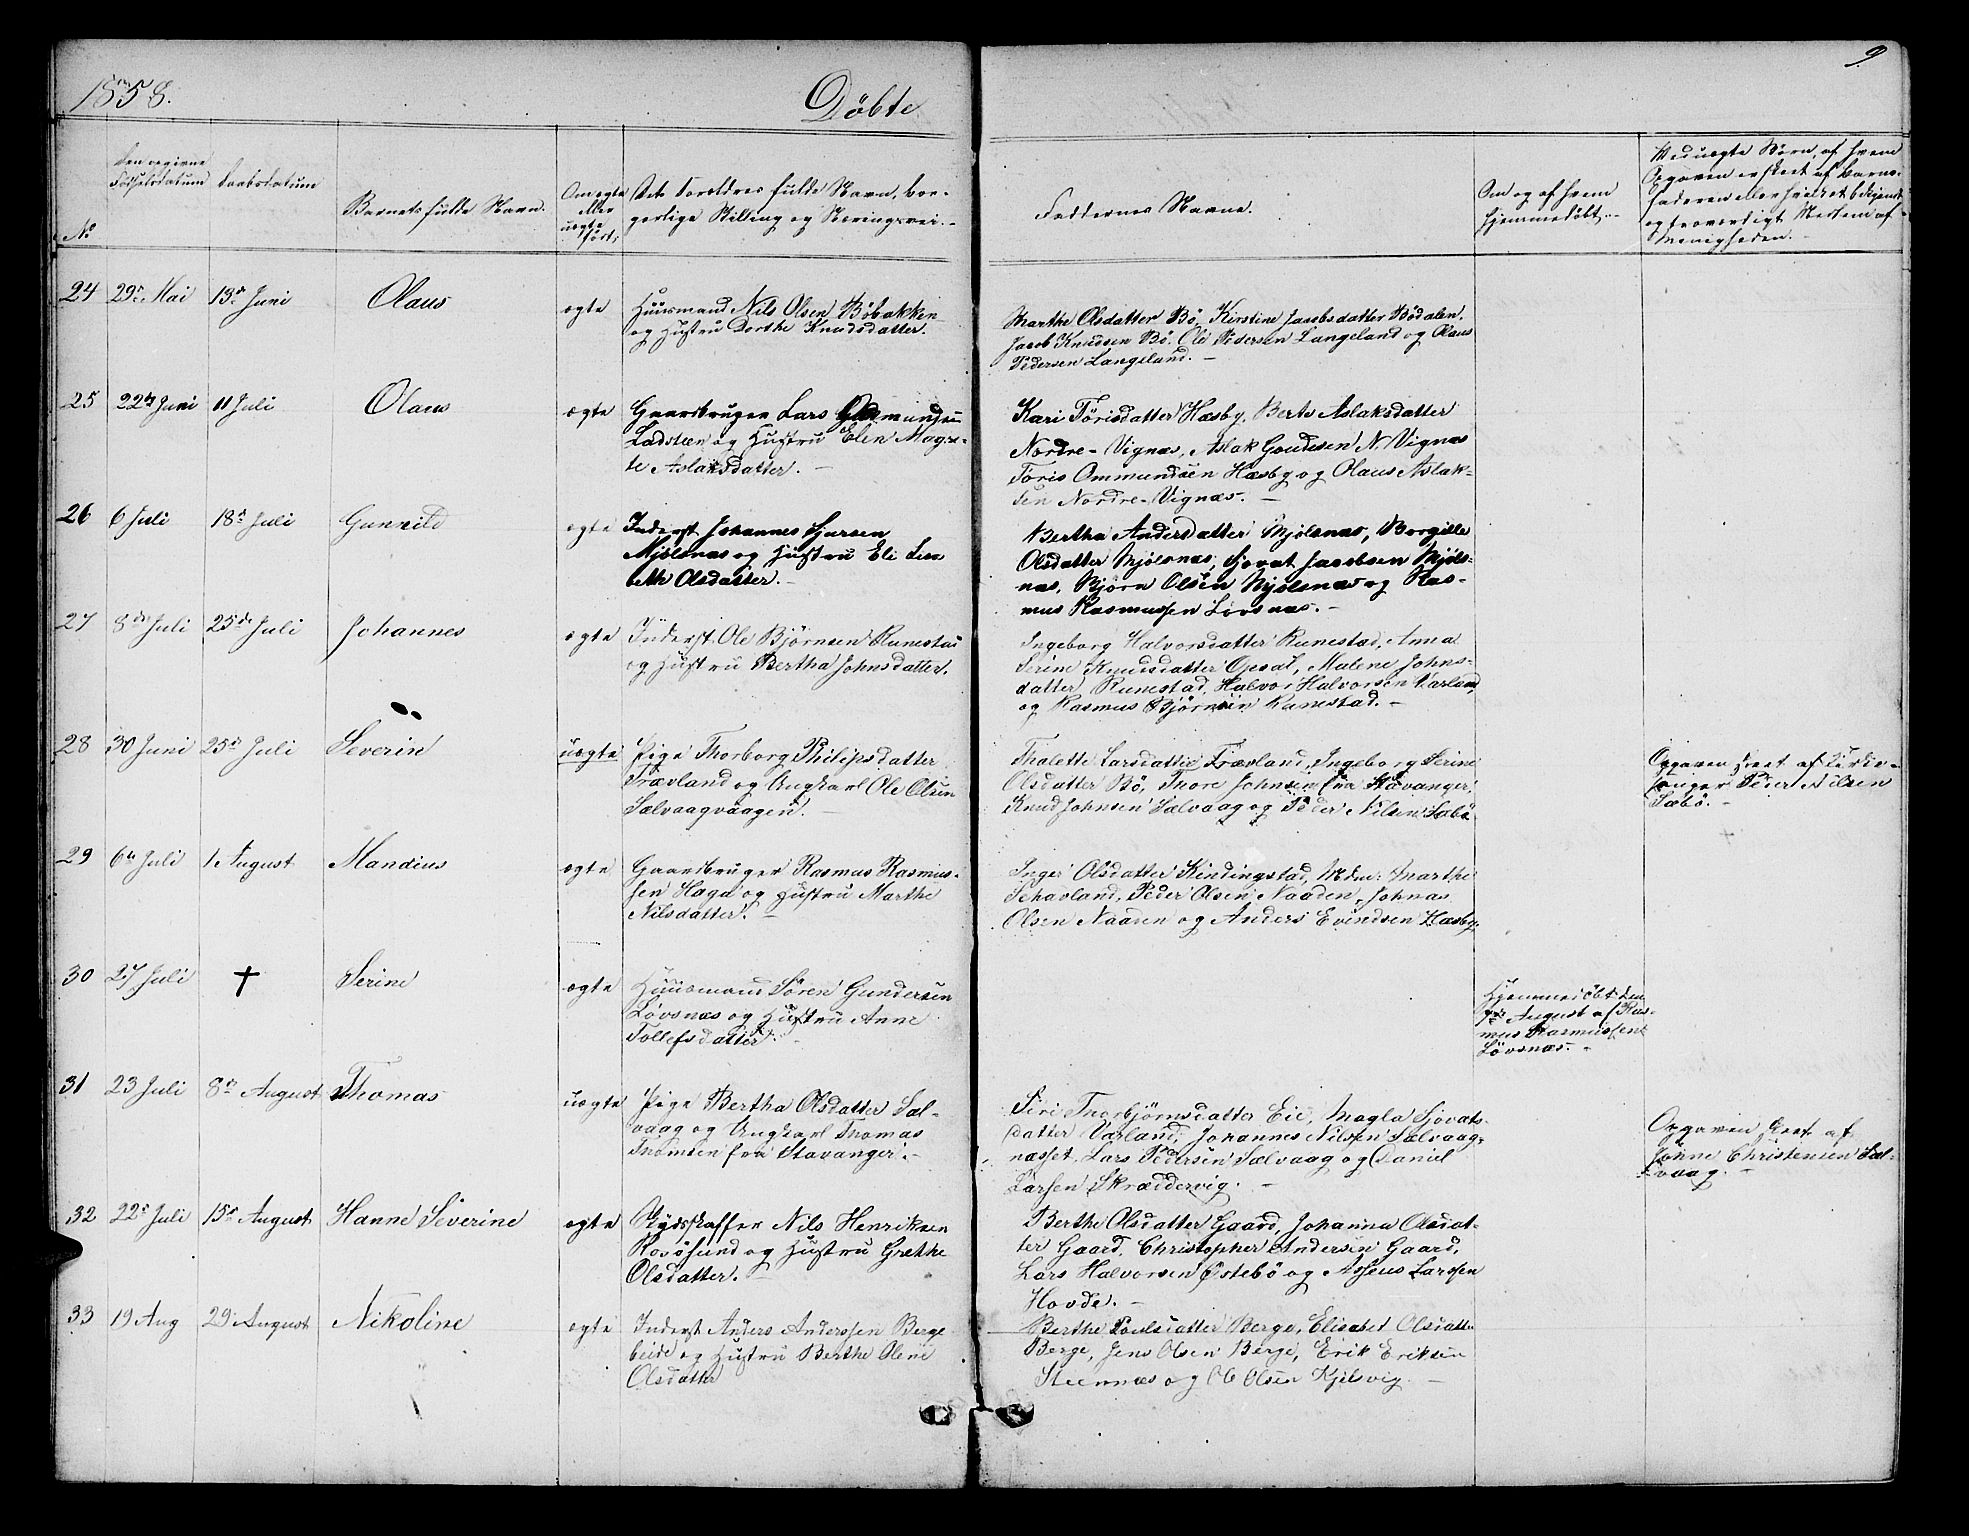 1858.
Døbte
9
No
Den opgivne
Fødselsdatum
Daabsdatum
Barnets fulde Navn.
Om ægte
eller
uægte
født.
De Forældres fulde Navn, bor-
gerlige Stilling og Næringsvei.-
Faddernes Navne.
Om og af hvem
hjemmedøbt.-
Ved uægte Børn, af hvem
Opgaven er skeet af Barne-
faderen eller hvilket bekjendt
og troværdigt Medlem af
Menigheden.-
24 29de Mai 13de Juni Olaus ægte
Huusmand Nils Olsen Bøbakken
og Hustru Dorthe Knudsdatter.
Marthe Olsdatter Bø, Kirstine Jacobsdatter Bødalen,
Jacob Knudsen Bø, Ole Pedersen Langeland og Olaus
Pedersen Langeland.-
25 22de Juni 11 Juli Olaus ægte
Gaardbruger Lars
Ladsteen og Hustru Elen Magre-
te Aslaksdatter.-
Kari Tørisdatter Hæsby, Berte Aslaksdatter
Nordre-Vignæs, Aslak Goudesen N. Vignæs
Töris Ommundsen Hæsby og Olaus Aslak-
sen Nordre-Vignæs.-
26 6 Juli 18de Juli Gunnild ægte
Inderst Johannes Sjursen
Mjølsnæs og Hustru Eli Lisa
beth Olsdatter.-
Bertha Andersdatter Mjølsnæs, Borgille
Olsdatter Mjølsnæs, Sjovat Jacobsen Mjøls-
næs, Bjørn Olsen Mjølsnæs og Ras-
mus Rasmussen Løvsnæs.-
27 8de Juli 25de Juli Johannes ægte
Inderst Ole Bjørnsen Runestad
og Hustru Bertha Johnsdatter.
Ingeborg Halvorsdatter Runestad, Anna
Serine Knudsdatter Opsal, Malene Johns-
datter Runestad, Halvor Halvorsen Varland
og Rasmus Bjørnsen Runestad.-
28 30 Juni 25de Juli Severin uægte
Pige Thorborg Philipsdatter
Frævland og Ungkarl Ole Olsen
Sælvaagvaagen.-
Thalette Larsdatter Frævland, Ingeborg Serine
Olsdatter Bø, Thore Johnsen fra Stavanger,
Knud Johnsen Sælvaag og Peder Nilsen Sæbø
Opgaven skeet af Kirke-
sanger Peder Nilsen
Sæbø.-
29 6te Juli 1 August Mandius ægte
Gaardbruger Rasmus Rasmus-
sen Haga og Hustru Marthe
Nilsdatter.-
Inger Olsdatter Kindingstad, Mdm: Marthe
Schavland, Peder Olsen Naaden, Johnas
Olsen Naaden og Anders Evindsen Hæsby.
30 27 Juli † Serine ægte
Huusmand Søren Gundersen
Løvsnæs og Hustru Anne
Tollefsdatter.-
Hjemmedøbt den
7de August af Ras-
mus Rasmussen
Løvsnæs.-
31 23 Juli 8de August Thomas uægte
Pige Bertha Olsdatter Sæl-
vaag og Ungkarl Thomas
Thomsen fra Stavanger.-
Siri Thorbjørnsdatter Eie, Magla Sjovats-
datter Varland, Johannes Nilsen Sælvaag-
næsset, Lars Pedersen Sælvaag og Daniel
Larsen Skrædervig.-
Opgaven skeet af
Johne Christensen Sæl-
vaag.-
32 22de Juli 15de August Hanne Severine ægte
Skydsskaffer Nils Henriksen
Rosøsund og Hustru Grethe
Olsdatter.-
Berthe Olsdatter Gaard, Johanna Olsdat-
ter Gaard, Christopher Andersen Gaard,
Lars Halvorsen Østebø og Asseus Larssen
Hovde.-
33 19 Aug 29 August Nikoline ægte
Inderst Anders Anderssen Berge
beide og Hustru Berthe Olene
Olsdatter
Berthe Poulsdatter Berge, Elisabet Olsdatter
Berge, Jens Olsen Berge, Erik Eriksen
Steennæs og Ole Olsen Kjelsvig.-